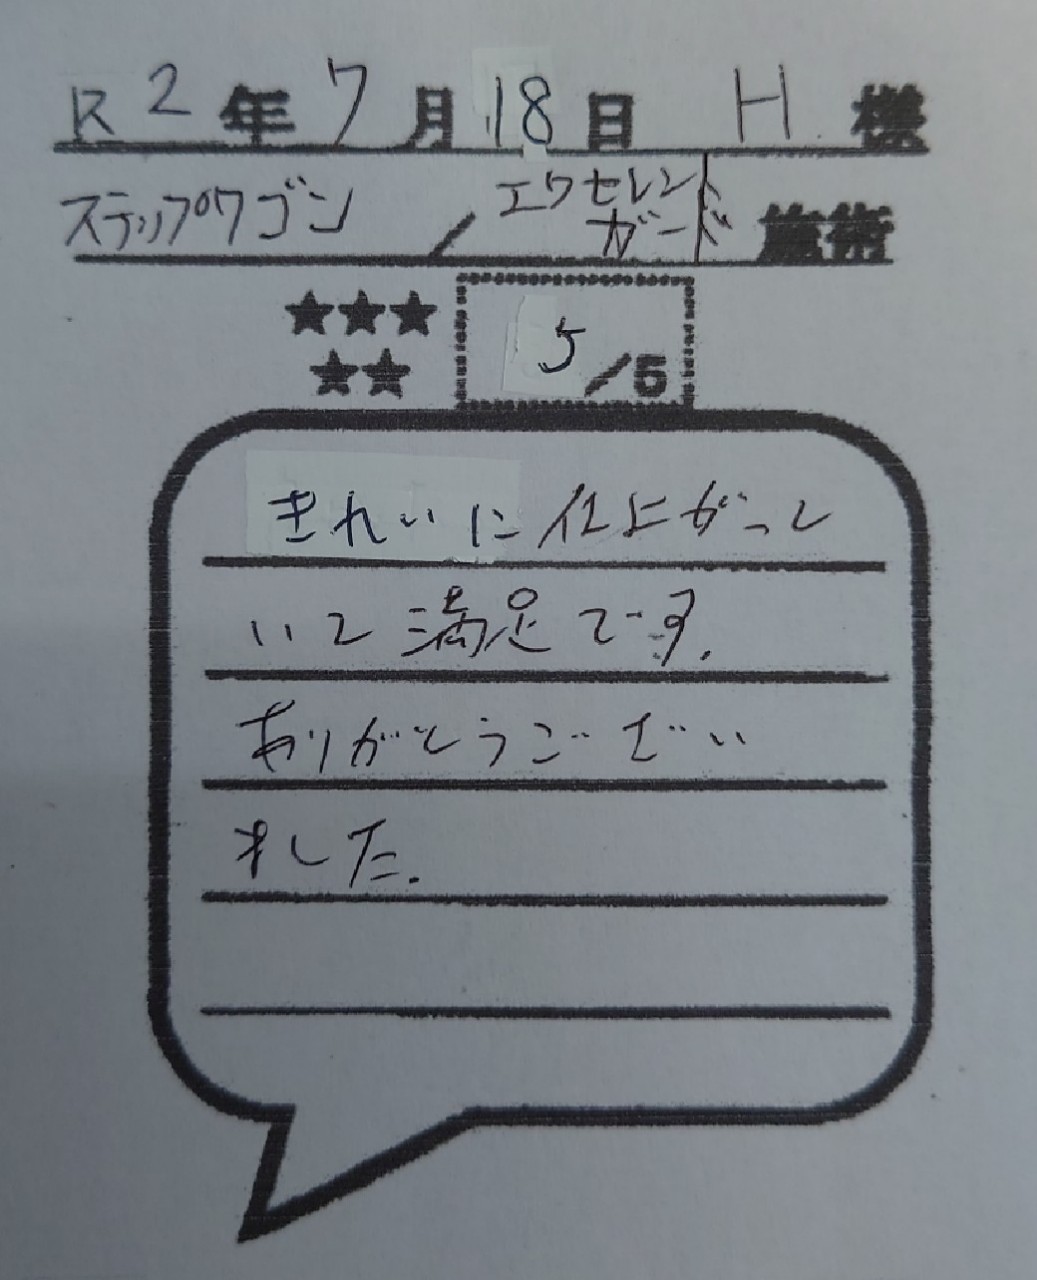 R2年7月18日 H 様
ステップワゴン / エクセレント
ガード 施術
★★★
★★
5/5
きれいに仕上がって
いて満足です.
ありがとうござい
ました.